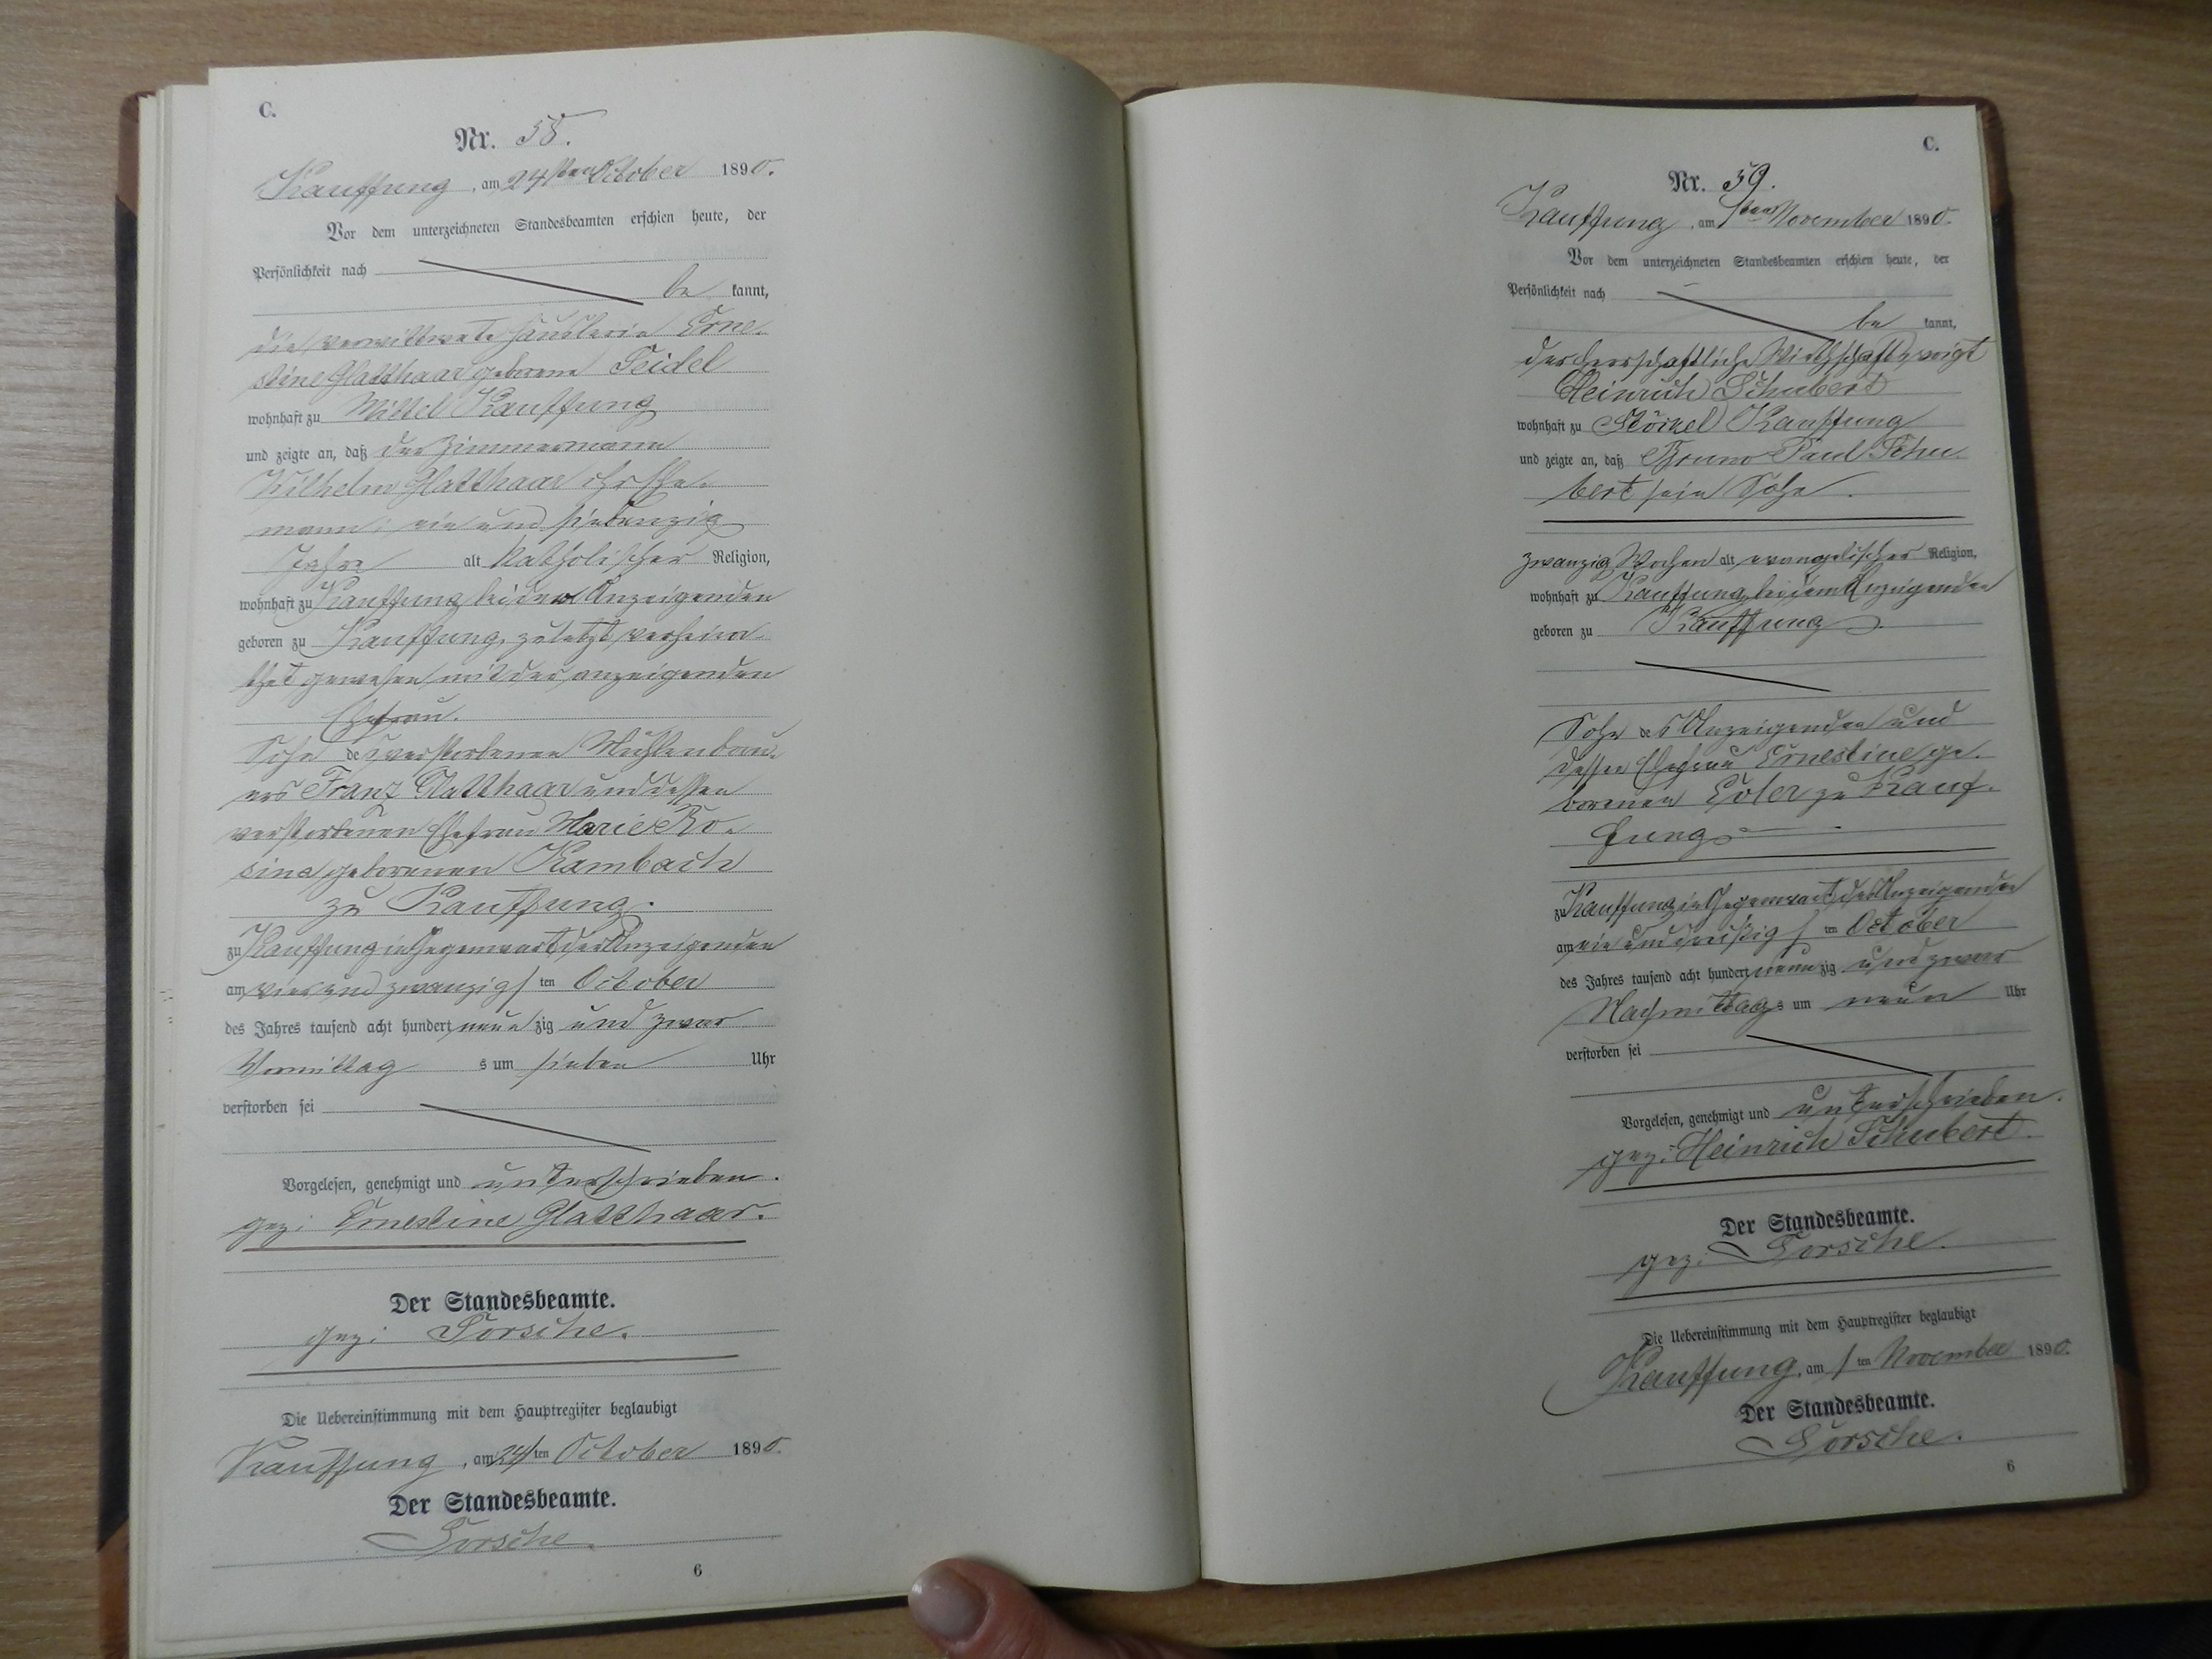 C.
Nr. 58.
Kauffung, am 24sten October 1890.
Vor dem unterzeichneten Standesbeamten erschien heute, der
Persönlichkeit nach
be kannt,
die verwittwete Häuslerin Erne-
stine Glatthaar geborene Seidel
wohnhaft zu Mittel Kauffung
und zeigte an, daß der Zimmermann
Wilhelm Glatthaar ihr Ehe-
mann, ein und siebenzig
Jahre alt katholischer Religion,
wohnhaft zu Kauffung bei der Anzeigenden
geboren zu Kauffung, zuletzt verheira-
thet gewesen mit der anzeigenden
Ehefrau.
Sohn des verstorbenen Mühlenbau-
ers Franz Glatthaar und dessen
verstorbenen Ehefrau Marie Ro-
sina geborenen Kambach
zu Kauffung.
zu Kauffung in Gegenwart der Anzeigenden
am vier und zwanzigsten October
des Jahres tausend acht hundert neun zig und zwar
Vormittags um sieben Uhr
verstorben sei
Vorgelesen, genehmigt und unterschrieben.
gez: Ernestine Glatthaar.
Der Standesbeamte.
gez: Torsche.
Die Uebereinstimmung mit dem Hauptregister beglaubigt
Kauffung, am 24sten October 1890.
Der Standesbeamte.
Torsche.
6
C.
Nr. 59.
Kauffung, am 1sten November 1890.
Vor dem unterzeichneten Standesbeamten erschien heute, der
Persönlichkeit nach
be kannt,
der herrschaftliche Wirthschaftsvoigt
Heinrich Schubert
wohnhaft zu Stöckel Kauffung
und zeigte an, daß Bruno Paul Schu-
bert sein Sohn.
zwanzig Wochen alt evangelischer Religion,
wohnhaft zu Kauffung bei dem Anzeigenden
geboren zu Kauffung
Sohn des Anzeigenden und
dessen Ehefrau Ernestine ge-
borenen zu Kauf-
fung
zu Kauffung in Gegenwart des Anzeigenden
am ein und dreißigsten October
des Jahres tausend acht hundert neun zig und zwar
Nachmittags um neun Uhr
verstorben sei
Vorgelesen, genehmigt und unterschrieben.
gez: Heinrich Schubert
Der Standesbeamte.
gez: Torsche.
Die Uebereinstimmung mit dem Hauptregister beglaubigt
Kauffung, am 1ten November 1890.
Der Standesbeamte.
Torsche.
6